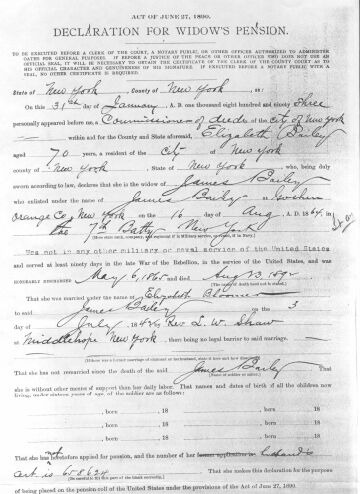 ACT OF JUNE 27, 1890.
DECLARATION FOR WIDOW'S PENSION.
TO BE EXECUTED BEFORE A CLERK OF THE COURT, A NOTARY PUBLIC, OR OTHER OFFICER AUTHORIZED TO ADMINISTER
OATHS FOR GENERAL PURPOSES. IF EXECUTED BEFORE A JUSTICE OF THE PEACE OR OTHER OFFICER WHO DOES NOT USE AN
OFFICIAL SEAL, IT WILL BE NECESSARY TO OBTAIN THE CERTIFICATE OF THE CLERK OF THE COUNTY COURT AS TO
HIS OFFICIAL CHARACTER AND GENUINENESS OF HIS SIGNATURE. IF EXECUTED BEFORE A NOTARY PUBLIC WITH A
SEAL, NO OTHER CERTIFICATE IS REQUIRED.
State of New York, County of New York, ss:
On this 31st day of January, A. D. one thousand eight hundred and ninety three
personally appeared before me, a Commissioner of deeds of the city of New York
within and for the County and State aforesaid, Elizabeth Bailey
aged 70 years, a resident of the city of New York
county of New York, State of New York, who, being duly
sworn according to law, declares that she is the widow of James Bailey
who enlisted under the name of James Bailey at Goshen
Orange Co, New York on the 16 day of Aug, A. D. 1864, in
the 7th Batty New York
Was not in any other military or naval service of the United States
and served at least ninety days in the late War of the Rebellion, in the service of the United States, and was
HONORABLY DISCHARGED May 6, 1865 and died Aug 23, 1892
That she was married under the name of Elizabeth Bloomer
to said James Bailey on the 3
day of July, 1842, by Rev. L. W. Shaw
at Middlehope New York, there being no legal barrier to said marriage.
That she has not remarried since the death of the said James Bailey That
she is without other means of support than her daily labor. That names and dates of birth of all the children now
living, under sixteen years of age, of the soldier are as follows:
, born , 18 , born , 18
, born , 18 , born , 18
, born , 18 , born , 18
That she has not heretofore applied for pension, and the number of her former application is husband's
cert. is 658624 That she makes this declaration for the purpose
of being placed on the pension-roll of the United States under the provisions of the Act of June 27, 1890.